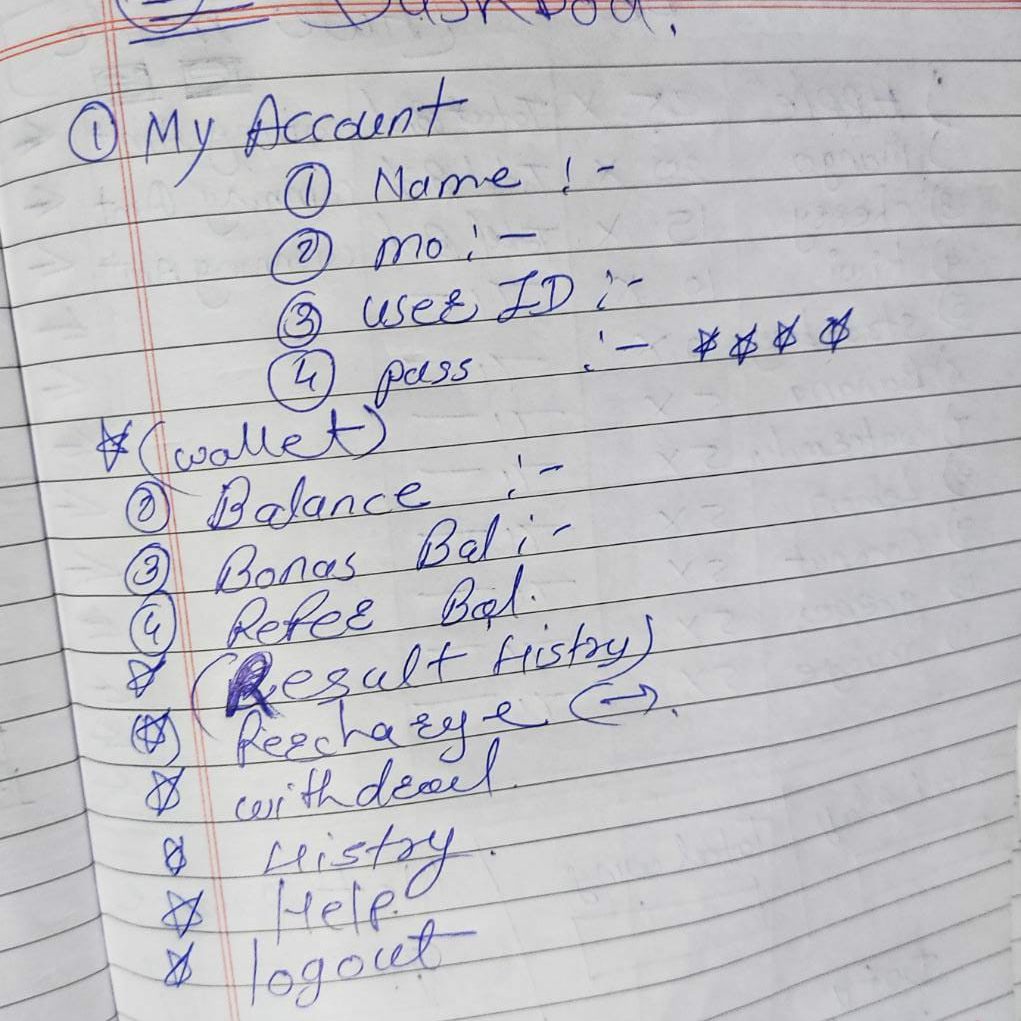 Dashboa.
① My Account
① Name :-
② mo :-
③ User ID :-
④ pass :- ☆☆☆☆
☆ (wallet)
② Balance :-
③ Bonas Bal :-
④ Refer Bal.
☆ (Result Histry)
(☆) Reecharge (→).
☆ withdraol.
☆ Histry.
☆ Help.
☆ logout